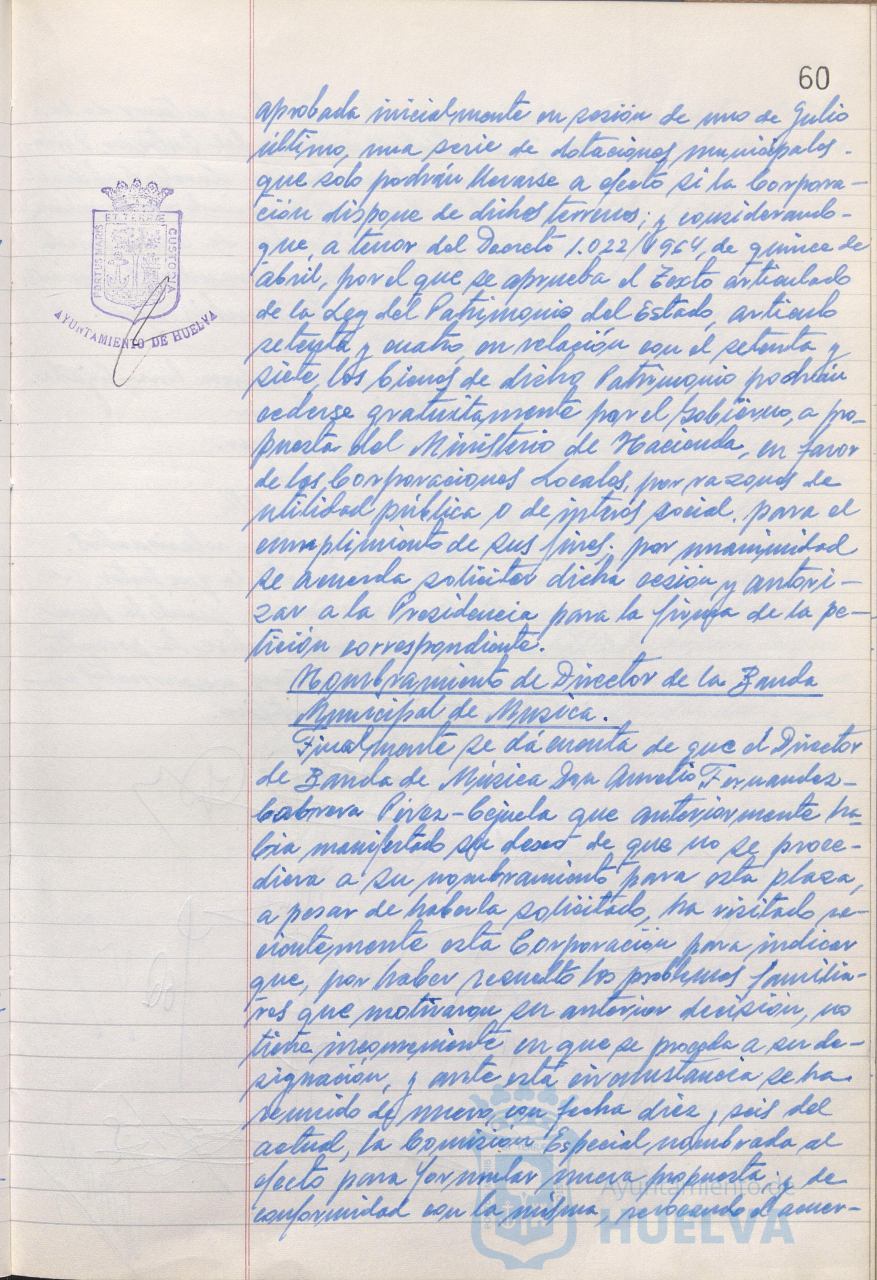 60
aprobada inicialmente en sesión de uno de Julio
último, una serie de dotaciones municipales.
que solo podrán llevarse a efecto si la Corpora-
ción dispone de dichos terrenos; y considerando-
que, a tenor del Decreto 1.022/1964, de quince de
abril, por el que se aprueba el Texto articulado
de la Ley del Patrimonio del Estado, artículo
setenta y cuatro, en relación con el setenta y
siete, los bienes de dicho Patrimonio podrán
cederse gratuitamente por el Gobierno, a pro-
puesta del Ministerio de Hacienda, en favor
de las Corporaciones Locales, por razones de
utilidad pública o de interés social. para el
cumplimiento de sus fines; por unanimidad
se acuerda solicitar dicha cesión y autori-
zar a la Presidencia para la firma de la pe-
tición correspondiente.
Nombramiento de Director de la Banda
Municipal de Musica.
Finalmente se dá cuenta de que el Director
de Banda de Música Don Aurelio Fernandez-
Cabrera Pérez-Cejuela que anteriormente ha-
bia manifestado su deseo de que no se proce-
diera a su nombramiento para esta plaza,
a pesar de haberla solicitado, ha visitado re-
cientemente esta Corporación para indicar
que, por haber resuelto los problemas familia-
res que motivaron su anterior decisión, no
tiene inconveniente en que se proceda a su de-
signación, y ante esta circunstancia se ha
reunido de nuevo con fecha diez y seis del
actual, la Comisión Especial nombrada al
efecto para formular nueva propuesta; y de
conformidad con la misma, revocando el acuer-
ET TERRÆ
PORTUS MARIS
CUSTODIA
AYUNTAMIENTO DE HUELVA
Ayuntamiento de
HUELVA